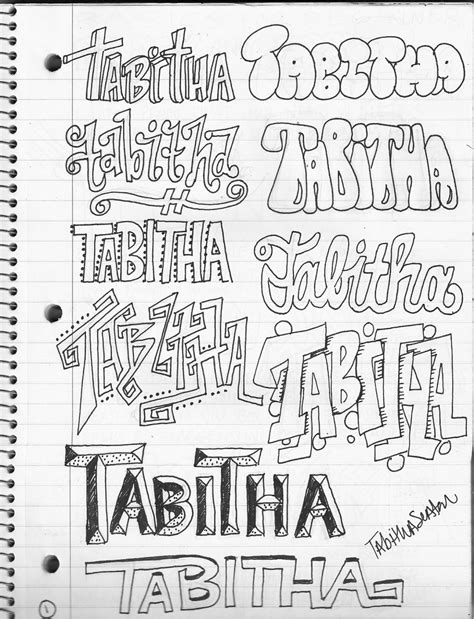 TABiTHA TABITHA
tabitha TABiTHA
TABITHA Tabitha
TABITHA TABiTHA
TABiTHA
Tabitha Seaton
TABITHA
1